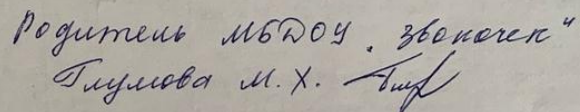 Родитель МБДОУ „Звоночек"
Глумова М. Х.